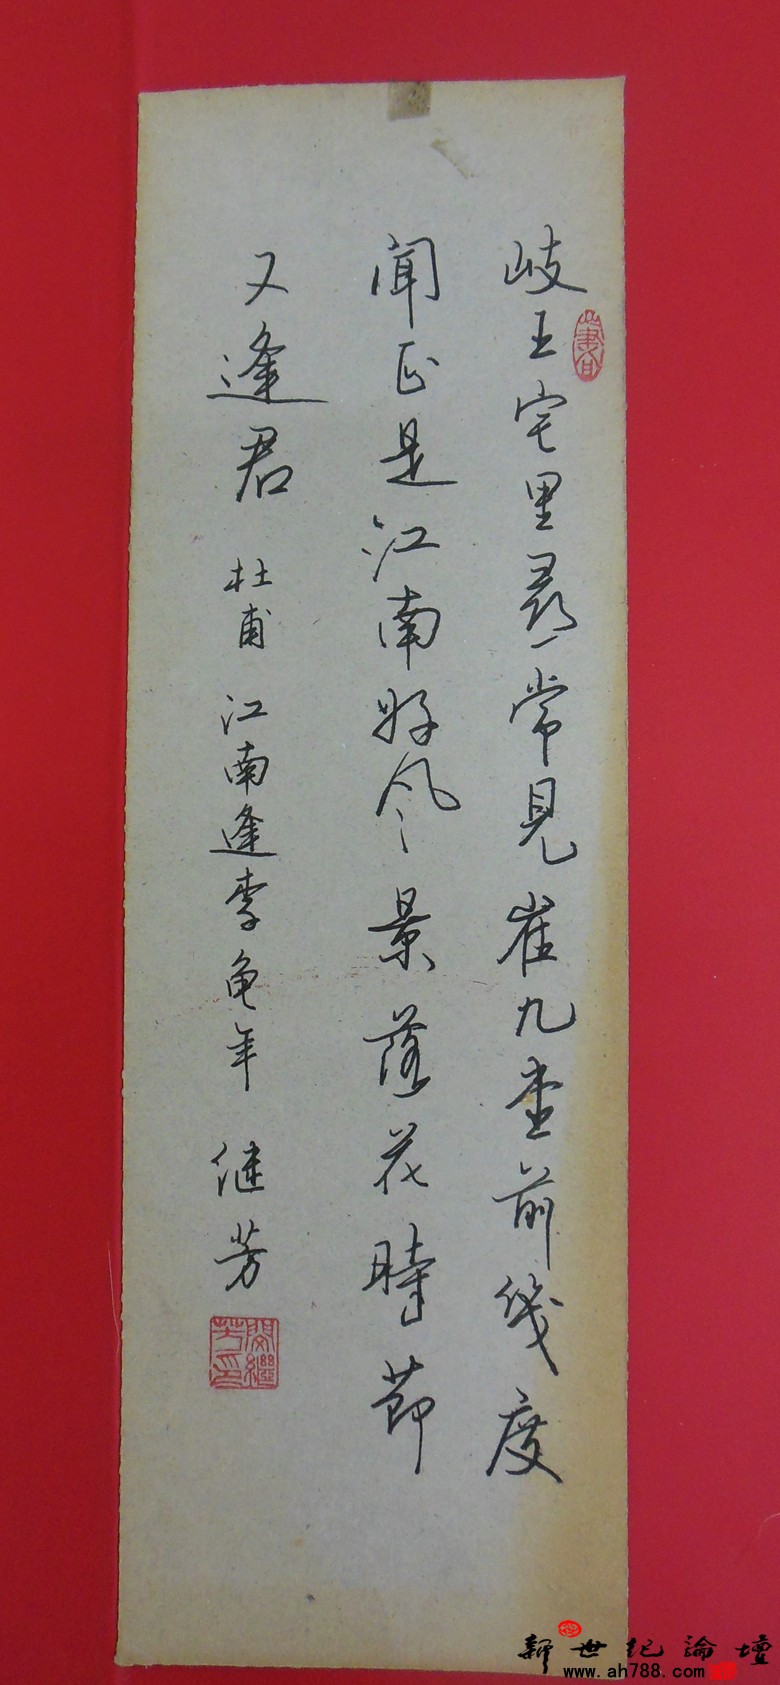 岐王宅里尋常見崔九堂前幾度
闻正是江南好风景落花時節
又逢君 杜甫 江南逢李龟年 继芳
新世纪論壇
www.ah788.com